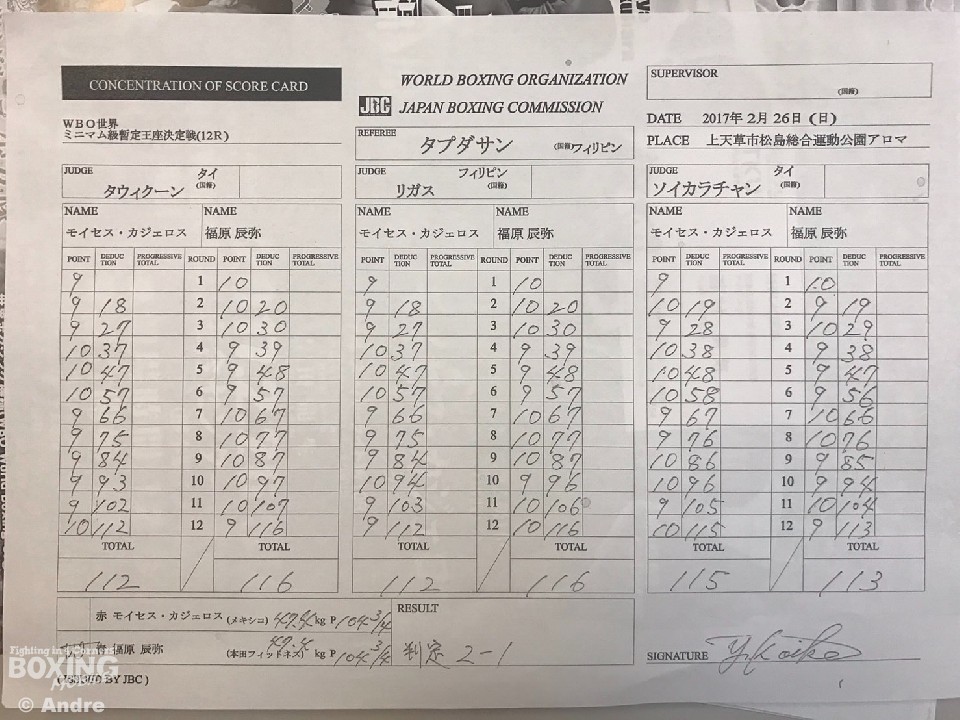 CONCENTRATION OF SCORE CARD
WORLD BOXING ORGANIZATION
JBC JAPAN BOXING COMMISSION
SUPERVISOR
(国籍)
WBO世界
ミニマム級暫定王座決定戦(12R)
REFEREE
タプダサン (国籍)フィリピン
DATE 2017年 2月 26日 (日)
PLACE 上天草市松島総合運動公園アロマ
JUDGE タイ
タウィクーン (国籍)
JUDGE フィリピン
リガス (国籍)
JUDGE タイ
ソイカラチャン (国籍)
NAME NAME NAME NAME NAME NAME
モイセス・カジェロス 福原 辰弥 モイセス・カジェロス 福原 辰弥 モイセス・カジェロス 福原 辰弥
POINT DEDUCTION PROGRESSIVE TOTAL ROUND POINT DEDUCTION PROGRESSIVE TOTAL POINT DEDUCTION PROGRESSIVE TOTAL ROUND POINT DEDUCTION PROGRESSIVE TOTAL POINT DEDUCTION PROGRESSIVE TOTAL ROUND POINT DEDUCTION PROGRESSIVE TOTAL
9 1 10 9 1 10 9 1 10
9 18 2 10 20 9 18 2 10 20 10 19 2 9 19
9 27 3 10 30 9 27 3 10 30 9 28 3 10 29
10 37 4 9 39 10 37 4 9 39 10 38 4 9 38
10 47 5 9 48 10 47 5 9 48 10 48 5 9 47
10 57 6 9 57 10 57 6 9 57 10 58 6 9 56
9 66 7 10 67 9 66 7 10 67 9 67 7 10 66
9 75 8 10 77 9 75 8 10 77 9 76 8 10 76
9 84 9 10 87 9 84 9 10 87 10 86 9 9 85
9 93 10 10 97 10 94 10 9 96 10 96 10 9 94
9 102 11 10 107 9 103 11 10 106 9 105 11 10 104
10 112 12 9 116 9 112 12 10 116 10 115 12 9 113
TOTAL TOTAL TOTAL TOTAL TOTAL TOTAL
112 116 112 116 115 113
赤 モイセス・カジェロス (メキシコ) 47.4kg P 104 3/4
RESULT
福原 辰弥 (本田フィットネス) 47.4 kg P 104 3/4
判定 2-1
SIGNATURE Y. Koike
(ISSUED BY JBC)
Fighting in 4 Corners
BOXING
© Andre